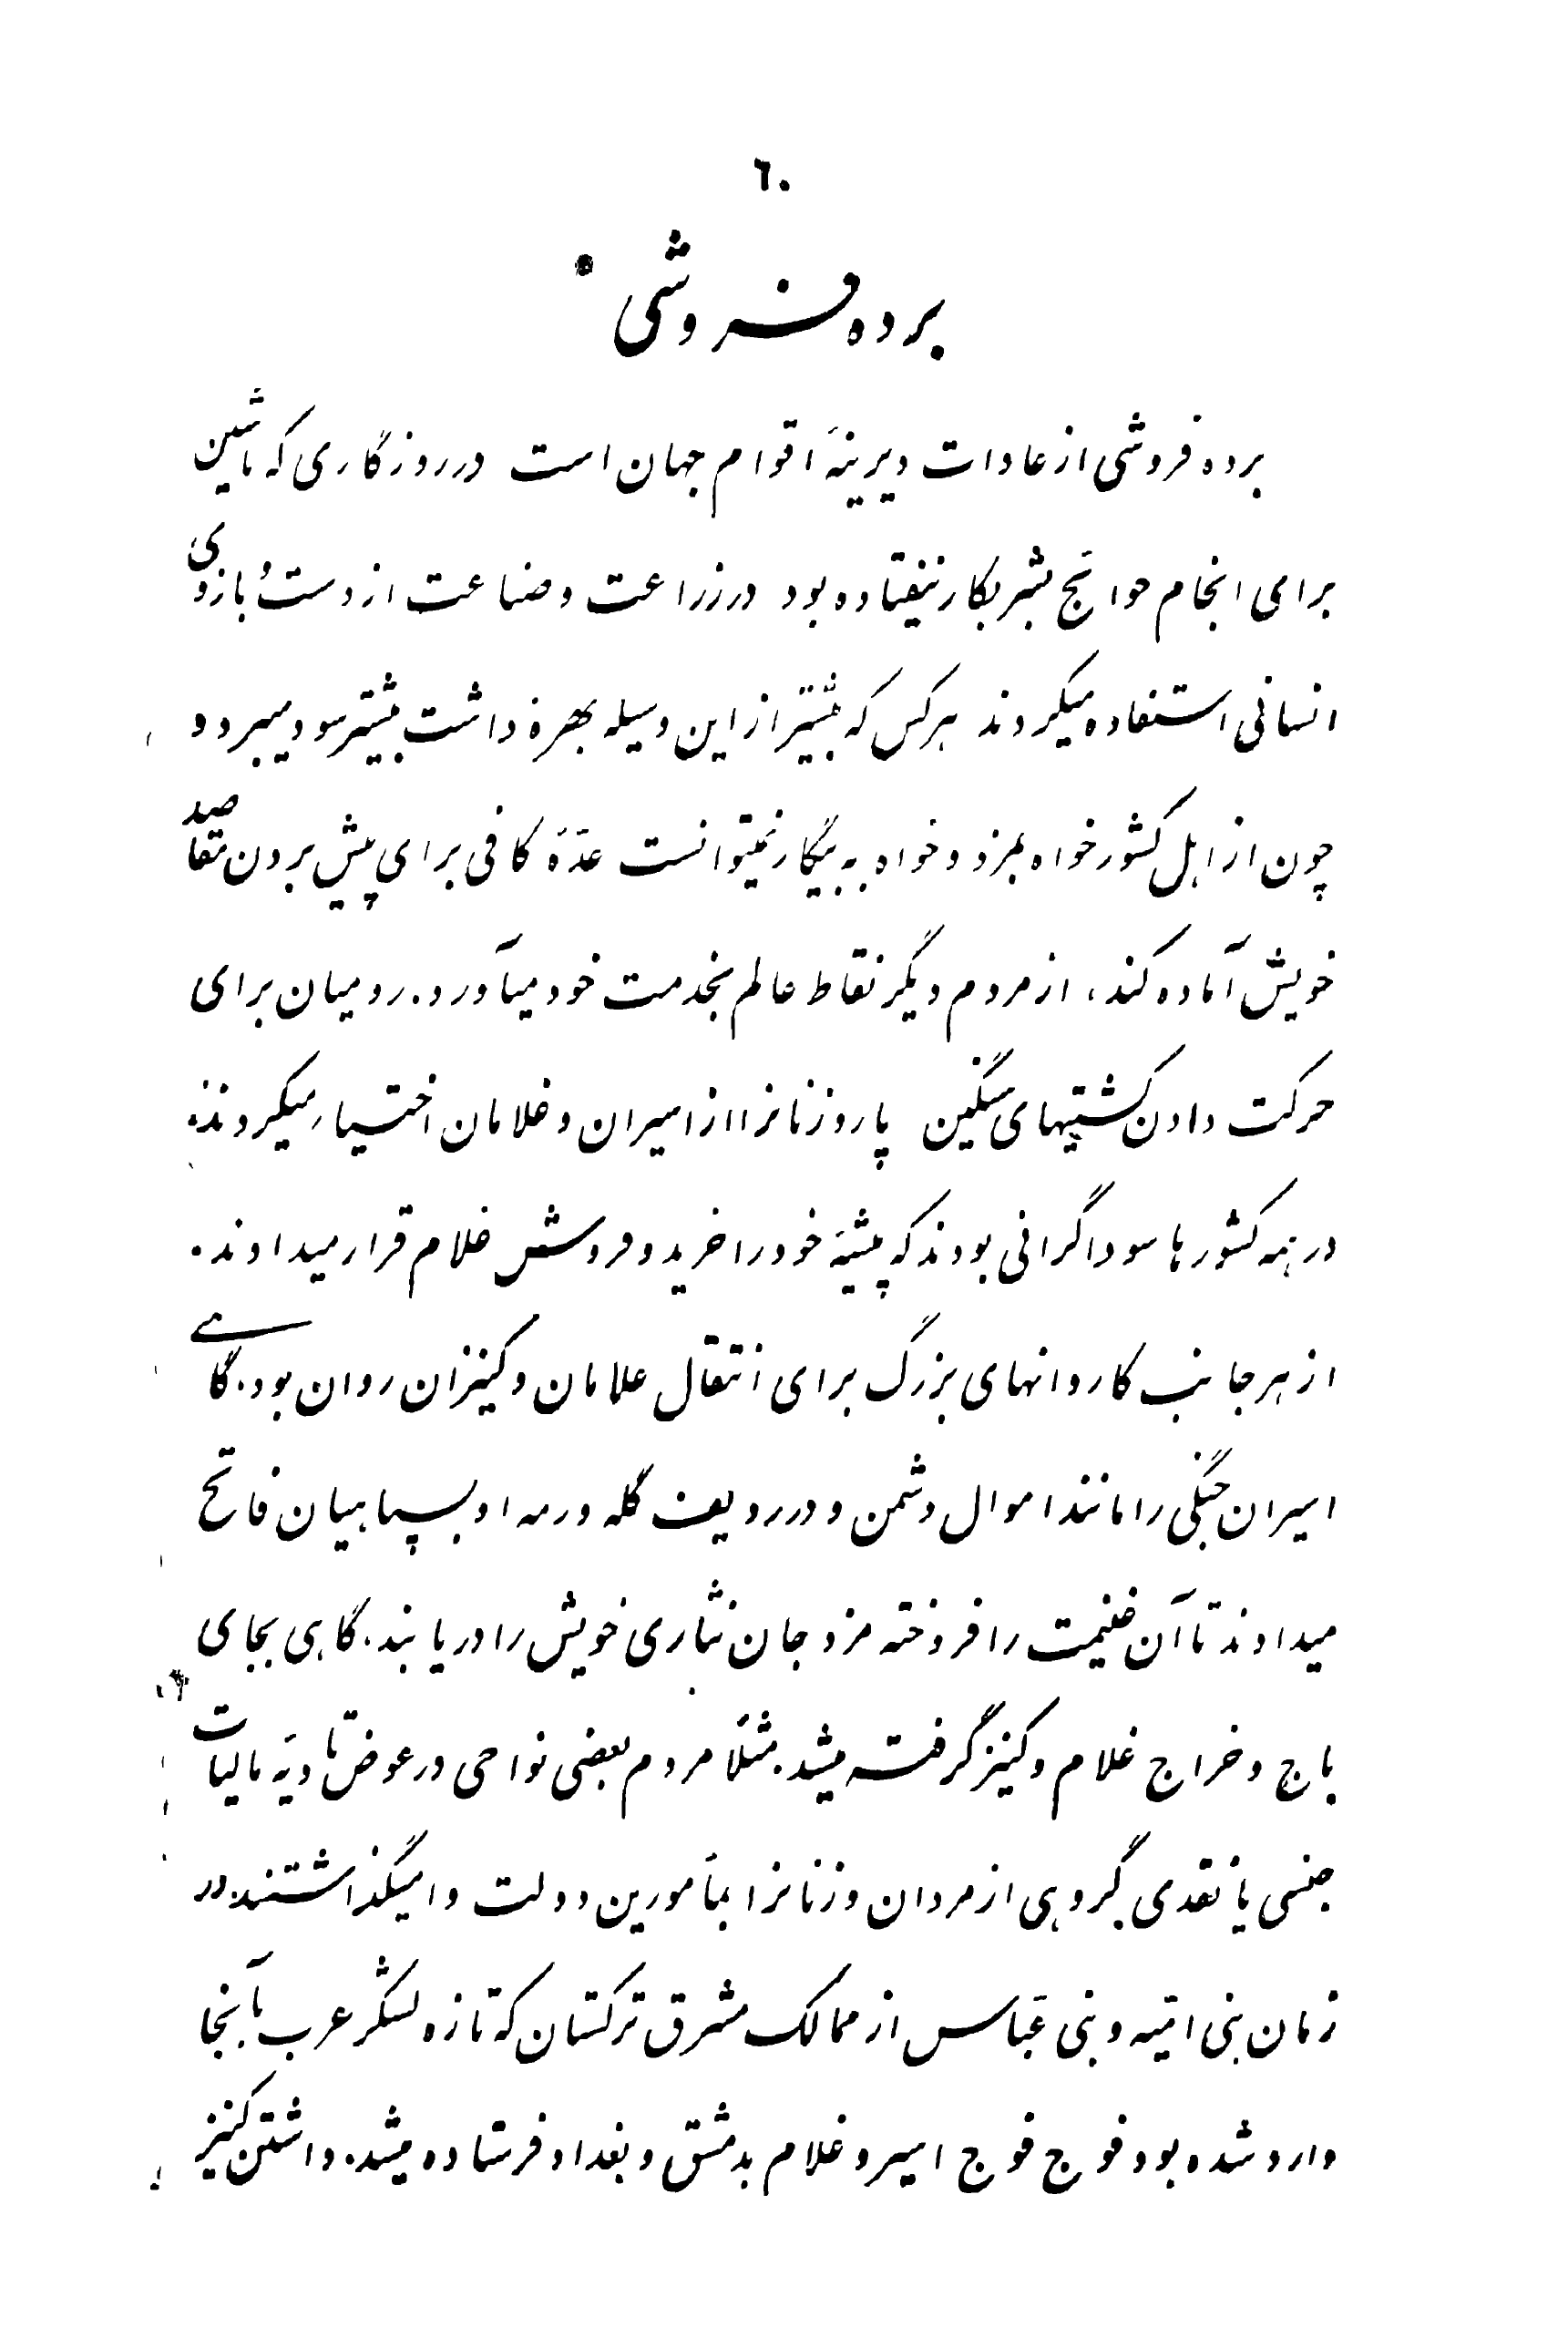 ٦٠
برده فروشی
برده فروشی از عادات دیرینهٔ اقوام جهان است در روزگاری که ماشین
برای انجام حوائج بشر بکار نیفتاده بود در زراعت و صناعت از دست و بازوی
انسانی استفاده میکردند هر کس که بیشتر از این وسیله بهره داشت بیشتر سود میبرد و
چون از اهل کشور خواه بمزد و خواه به بیگار نمیتوانست عدّهٔ کافی برای پیش بردن مقاصد
خویش آماده کند، از مردم دیگر نقاط عالم بخدمت خود میآورد. رومیان برای
حرکت دادن کشتیهای سنگین پاروزنانرا از اسیران و غلامان اختیار میکردند.
در همه کشورها سوداگرانی بودند که پیشهٔ خود را خرید و فروش غلام قرار میدادند.
از هر جانب کاروانهای بزرگ برای انتقال غلامان و کنیزان روان بود. گاهے
اسیران جنگی را مانند اموال دشمن و در ردیف گله و رمه او بسپاهیان فاتح
میدادند تا آن غنیمت را فروخته مزد جان نثاری خویش را دریابند. گاهی بجای
باج و خراج غلام و کنیز گرفته میشد. مثلاً مردم بعضی نواحی در عوض تأدیهٔ مالیات
جنسی یا نقدی گروهی از مردان و زنانرا بمأمورین دولت وامیگذاشتند. در
زمان بنی امیّه و بنی عبّاس از ممالک مشرق ترکستان که تازه لشگر عرب بآنجا
وارد شده بود فوج فوج اسیر و غلام بدمشق و بغداد فرستاده میشد. داشتن کنیز